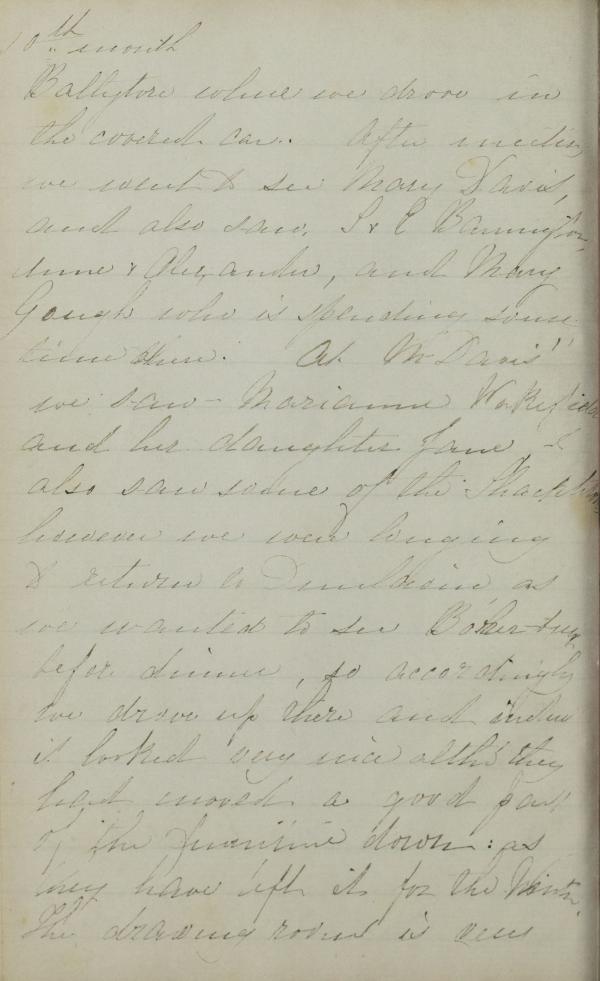 10th month
Ballytore where we drove in
the covered car. After meeting
we went to see Mary Davis,
and also saw, S & E Barrington
Anne & Alexander, and Mary
Gough who is spending some
time there. At M Davis'
we saw - Marianne Wakefield
and her daughter Jane - &
also saw some of the Shackletons
however we were longing
to return to as
we wanted to see
before dinner, so accordingly
we drove up there and indeed
it looked very nice altho' they
had moved a good part
of the furniture down: as
they have left it for the Winter.
The drawing room is very